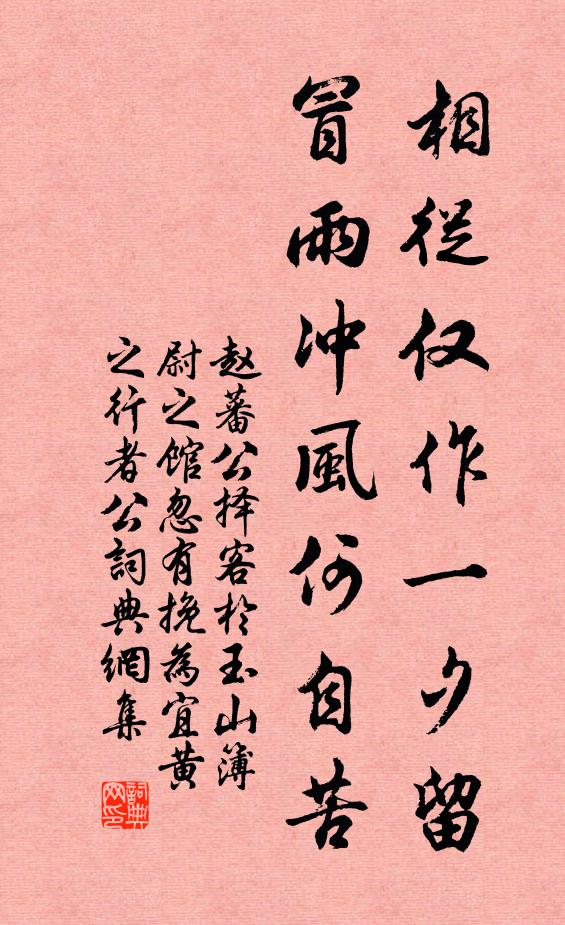 相從仅作一夕留
冒雨冲風何自苦
赵蕃公择客於玉山簿
尉之馆忽有挽為宜黄
之行者公詞典網集
詞典
网印